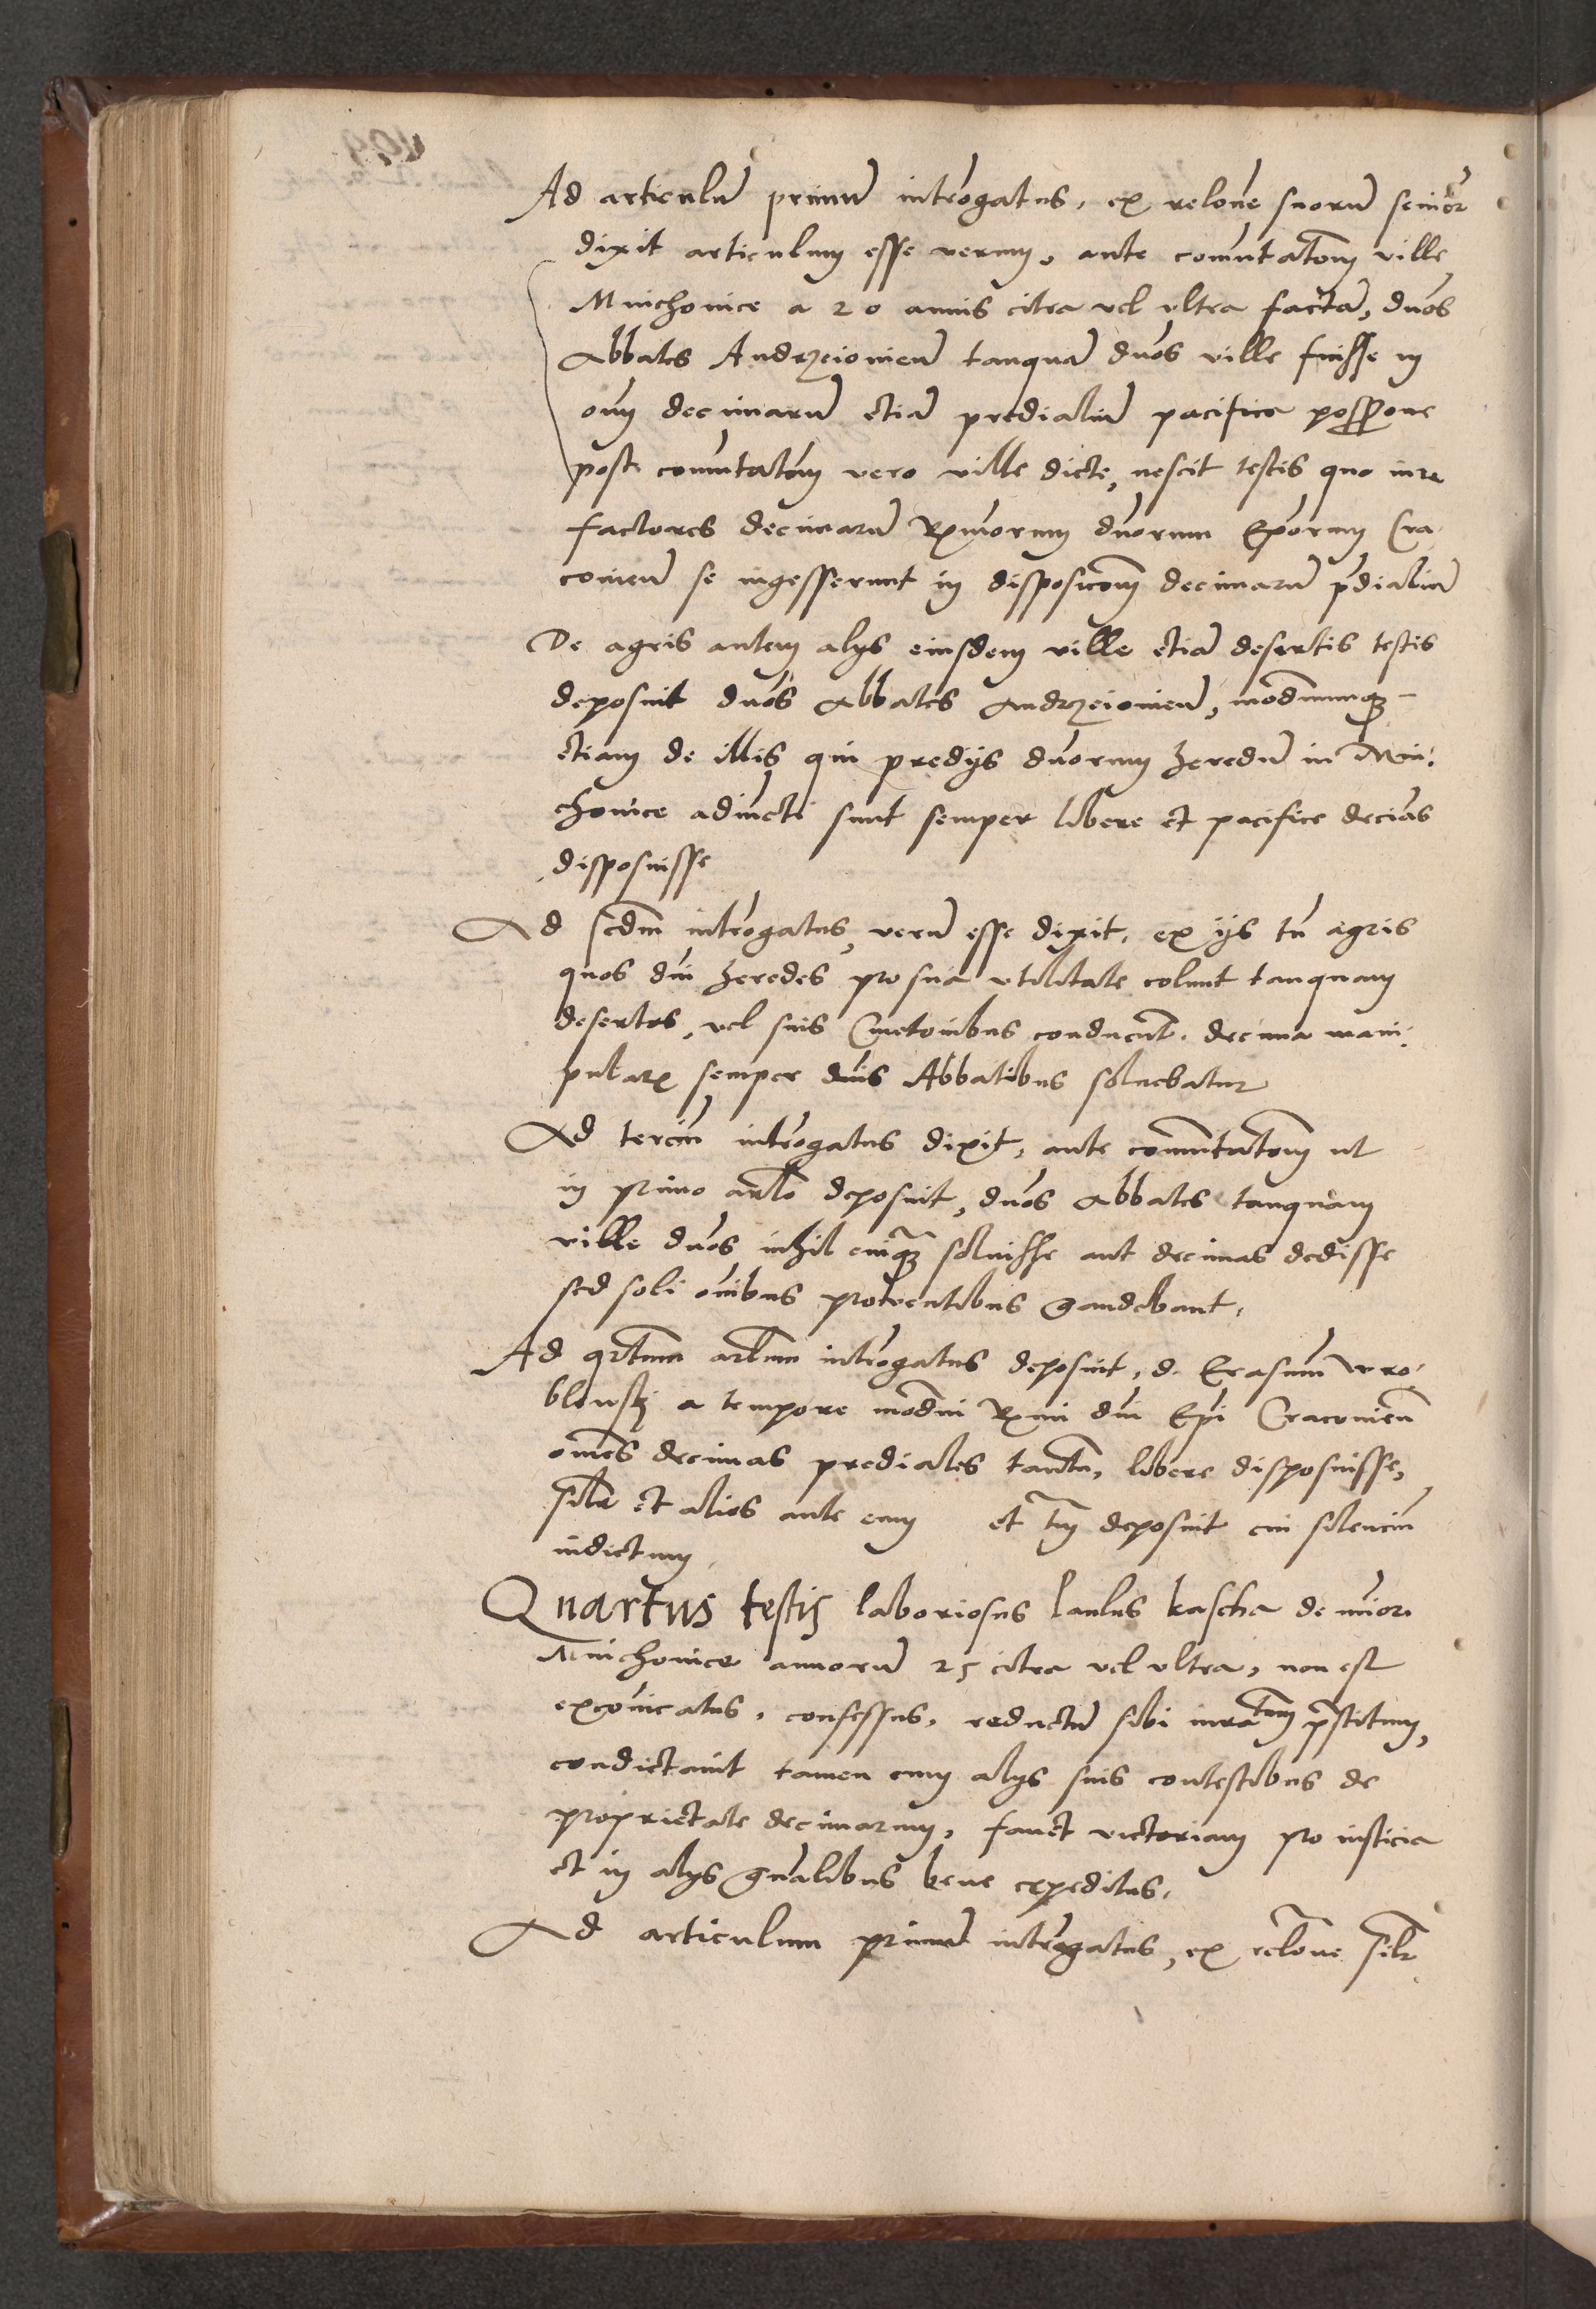 Ad articulu primu interogatus, ex relone suoru senior
dixit articulum esse verum, ante comutatom ville
Mnichovice a 20 annis citra vel ultra facta, dnos
Abbates Andrzeiovien tanqua dnos ville fuisse in
oim decimaru etia predialiu pacifica possone
post comutatom vero ville dicte, nescit testis quo iure
factores decimaru Rmorum dnorum Eporum Cra
covien se ingesserunt in dispositom decimaru pdialiu
De agris autem alys eiusdem ville etia desertis testis
deposuit dnos Abbates Andrzeiovien, modernumq
etiam de illis qui predys dnorum heredu in Mni
chovice adiucti sunt semper libere et pacifice decias
disposuisse
Ad scdm interogatus, veru esse dixit, ex ijs tn agris
quos dni heredes pro sua utilitate colunt tanquam
desertos, vel suis Cmetonibus conducut, decima mani
pular semper dnis Abbatibus solvebatur
Ad terciu interogatus dixit, ante comutatom ut
in primo arlo deposuit, dnos Abbates tanquam
ville dnos nihil cuiq solvisse aut decimas dedisse
sed soli oibus proventibus gaudebant,
Ad qrtum arlum interogatus deposuit, d. Erasmum Wro
blewskj a tempore moderni Rmi dni Epi Cracovien
omes decimas prediales tantu, libere disposuisse,
silr et alios ante eum et tm deposuit cui silenciu
indictum,
Quartus testis laboriosus Paulus Kascha de minor
Mnichovice annoru 25 citra vel ultra, non est
excoicatus, confessus, reductu sibi iuratum pstitum,
condictavit tamen cum alys suis contestibus de
proprietate decimarum, favet victoriam pro iusticia
et in alys gnalibus bene expeditus,
Ad articulum primu interogatus, ex relone silr